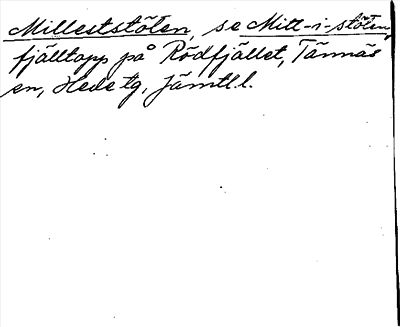 Milleststöten, se Mitt-i-stöten,
fjälltopp på Rödfjället, Tännäs
sn, Hede tg, Jämtl.l.